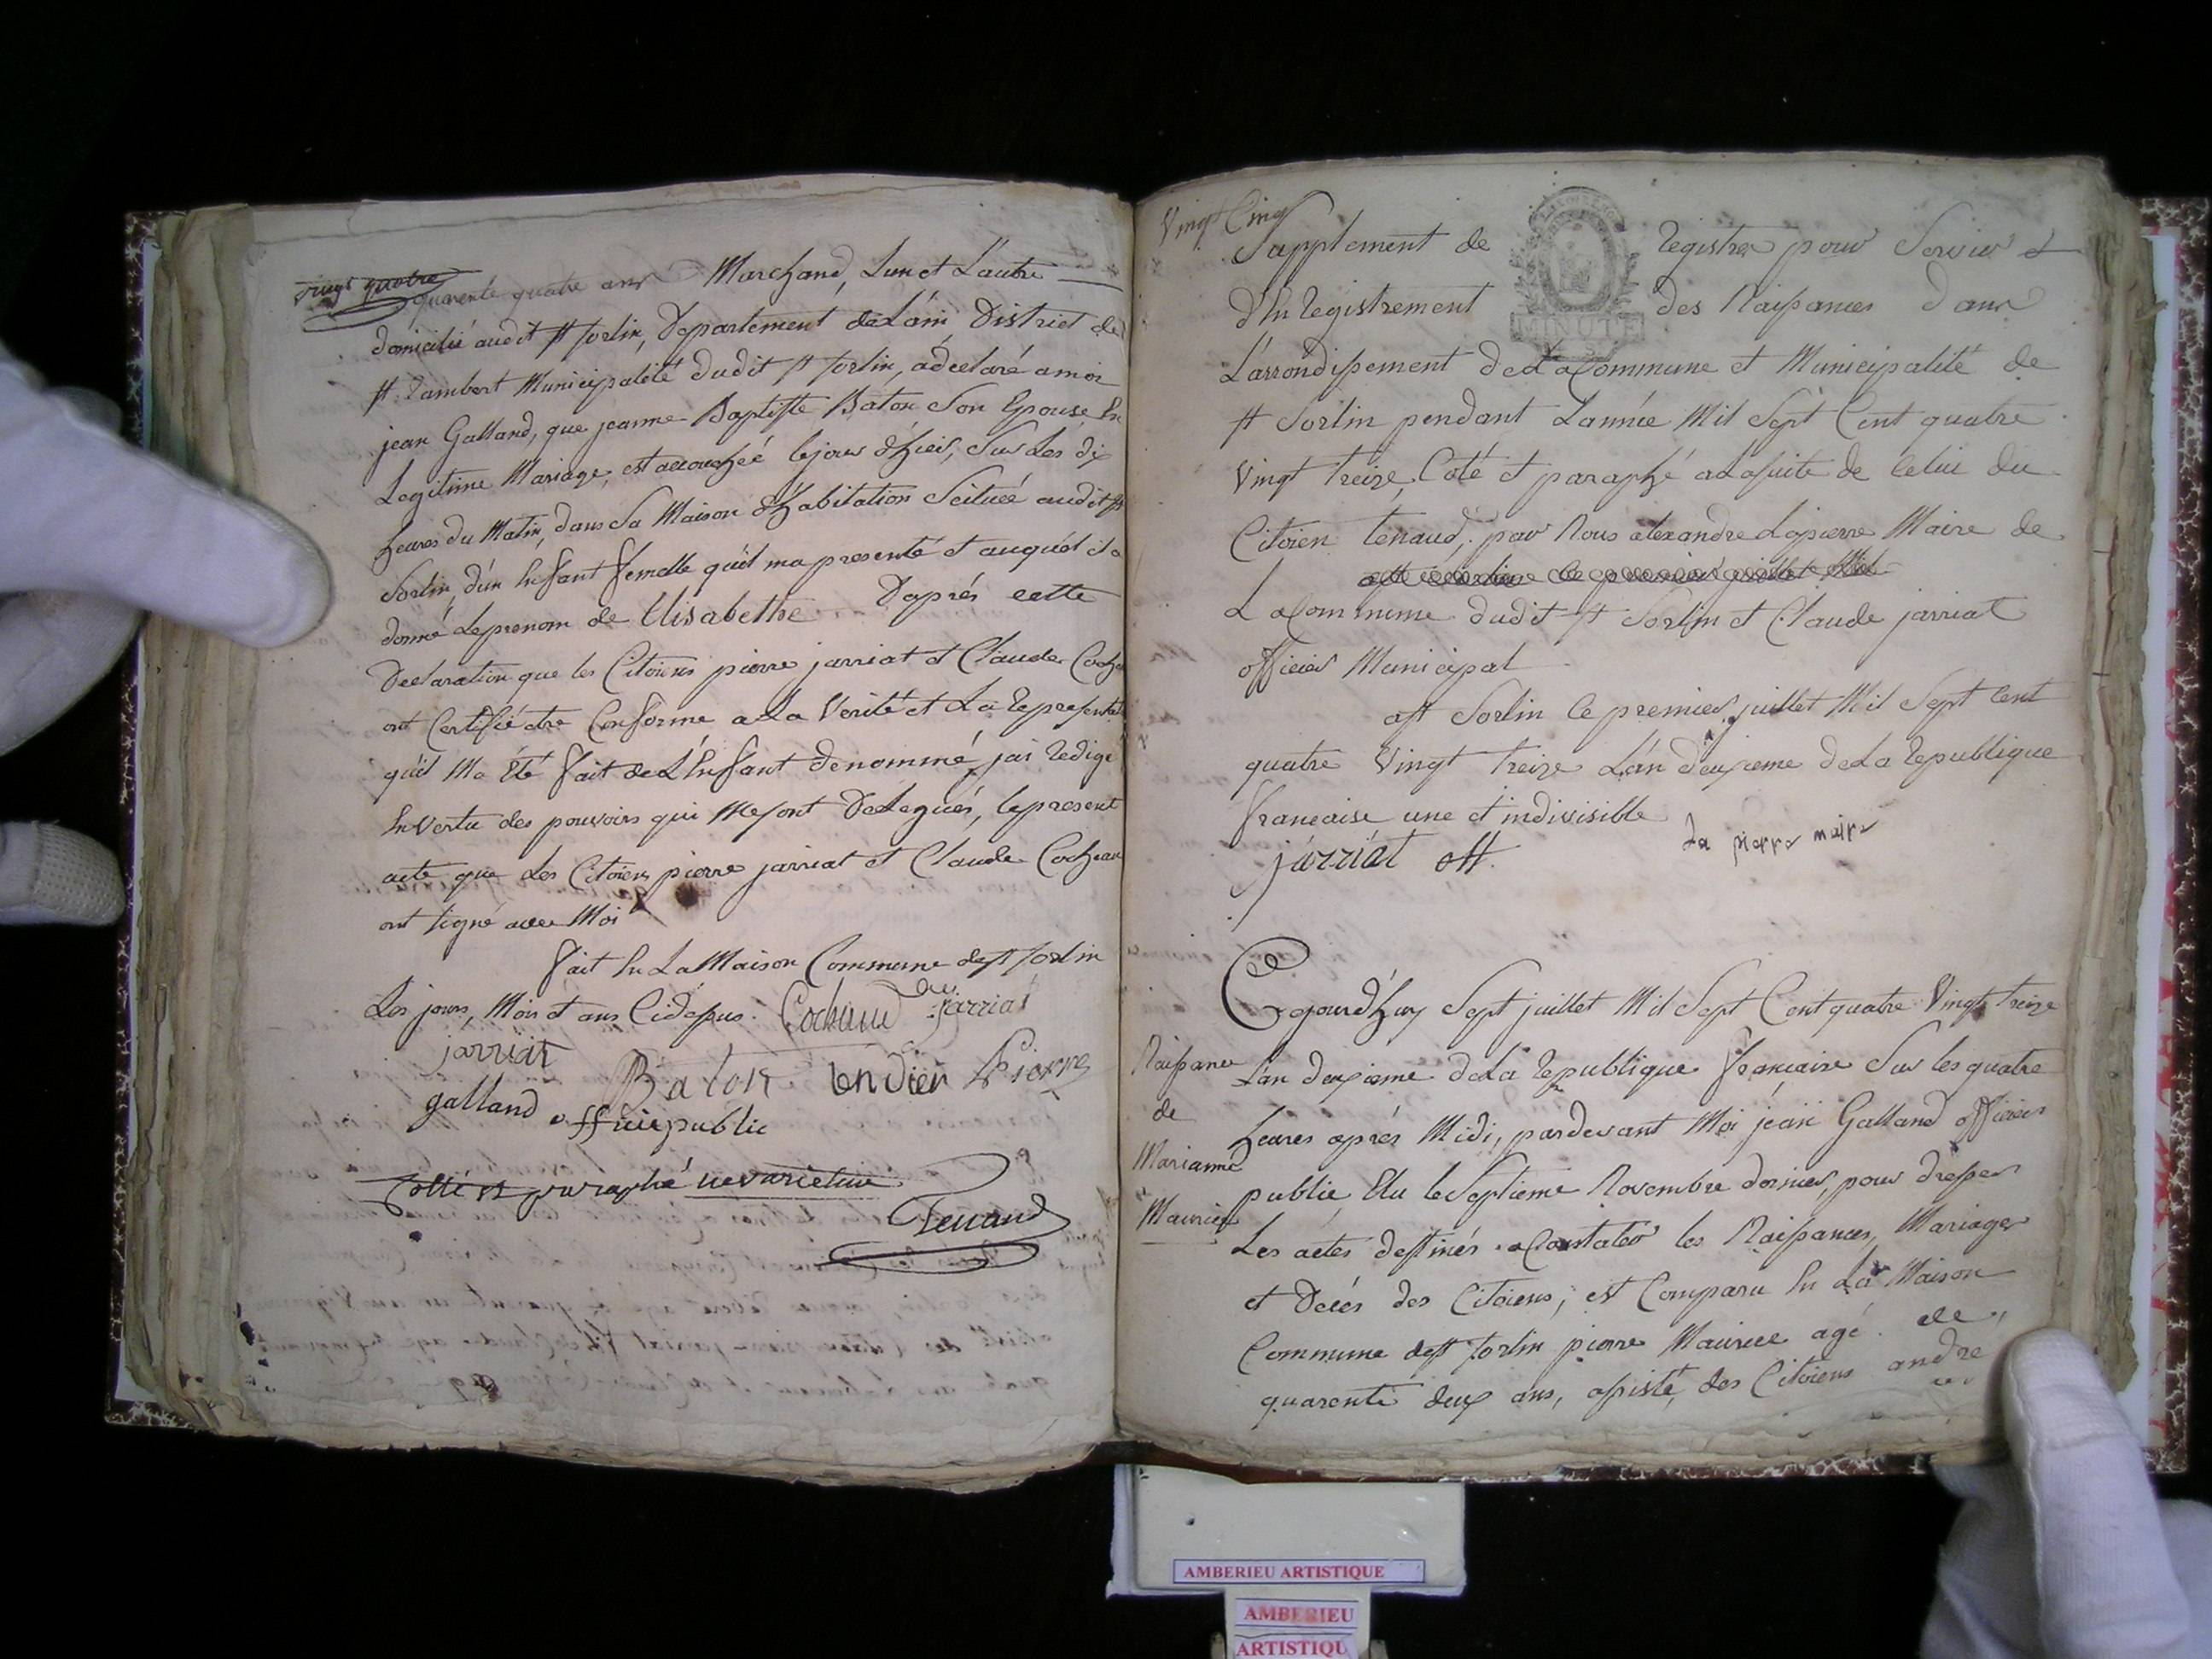 vingt quatre
quarente quatre ans Marchand, Lun et L'autre
domicilié audit St Sorlin, Departement de L'ain District de
St Rambert Municipalité dudit St Sorlin, a declaré a moi
jean Galland, que jeanne Baptiste Baton Son Epouse En
Legitime Mariage, est accouchéé le jour d'hier, Sur Les dix
heures du Matin, dans Sa Maison d'habitation Scituéé audit St
Sorlin, d'un Enfant femelle qu'il ma presenté et auquel il a
donné Le prenom de Elisabethe D'aprés cette
Declaration que les Citoiens pierre jarriat et Claude
ont Certifié etre Conforme a La Vérité et La
qu'il Ma Eté fait de L'Enfant denommé, jai Redigé
En Vertu des pouvoirs qui Me sont Delegués, le present
acte que Les Citoiens pierre jarriat et Claude
ont signé avec Moi
fait En La Maison Commune de St Sorlin
Les jours, Mois et ans Cidessus. jarriat
jarriat Baton Pierre
galland officie public
Cotté et paraphé ne varietur
Tenand
Vingt Cinq
Supplement de Registre pour Servir
d'En Registrement des Naissances dans
L'arrondissement de La Commune et Municipalité de
St Sorlin pendant L'année Mil Sept Cent quatre
Vingt Treize, Coté et paraphé a La suite de Celui du
Citoien tenaud, par Nous alexandre Lapierre Maire de
La Commune dudit St Sorlin et Claude jarriat
officier Municipal
a St Sorlin le premier juillet Mil Sept Cent
quatre Vingt treize L'an deuxieme de La Republique
francaise une et indivisible
La pierre maire
jarriat off.
MINUTE
Cejourd'huy Sept juillet Mil Sept Cent quatre Vingt treize
L'an deuxieme de La Republique francaise Sur les quatre
heures aprés Midi, pardevant Moi jean Galland officier
public Elu le Septieme Novembre dernier, pour dresser
Les actes destinés a Constater les Naissances, Mariages
et Decés des Citoiens, est Comparu En La Maison
Commune de St Sorlin pierre Maurice agé de
quarente deux ans, assisté, des Citoiens andré
Naissance
de
Marianne
Maurice
AMBERIEU ARTISTIQUE
AMBERIEU
ARTISTIQU